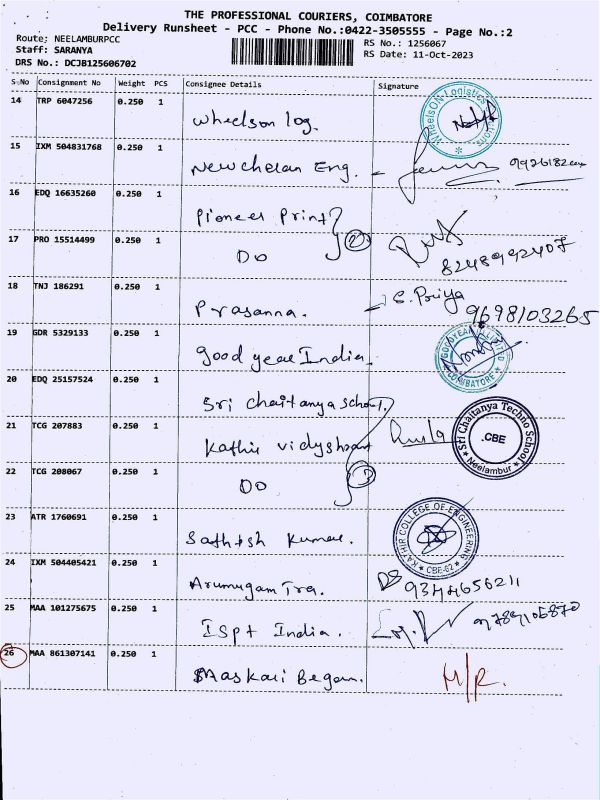 THE PROFESSIONAL COURIERS, COIMBATORE
Delivery Runsheet - PCC - Phone No.:0422-3505555 - Page No.:2
Route; NEELAMBURPCC
RS No.: 1256067
Staff: SARANYA
RS Date: 11-Oct-2023
DRS No.: DCJB125606702
S.No Consignment No Weight PCS Consignee Details Signature
14 TRP 6047256 0.250 1 Wheelson log.
WheelsON Logistics
15 IXM 504831768 0.250 1 Newchelan Eng.
16 EDQ 16635260 0.250 1 Pioneer Print
17 PRO 15514499 0.250 1 Do
2
8248992407
18 TNJ 186291 0.250 1 Prasanna. S. Priya
9698103265
19 GDR 5329133 0.250 1 Good year India
COIMBATORE
20 EDQ 25157524 0.250 1 Sri Chaitanya School.
21 TCG 207883 0.250 1 Kathir
Sri Chaitanya Techno School
.CBE
Neelambur
22 TCG 208067 0.250 1 Do
23 ATR 1760691 0.250 1 Sathish Kumar.
KATHIR COLLEGE OF ENGINEERING
CBE-62
24 IXM 504405421 0.250 1 Arumugam Tra.
9344656211
25 MAA 101275675 0.250 1 ISPt India.
9789106870
26 MAA 861307141 0.250 1 Maskari Began. M/R.